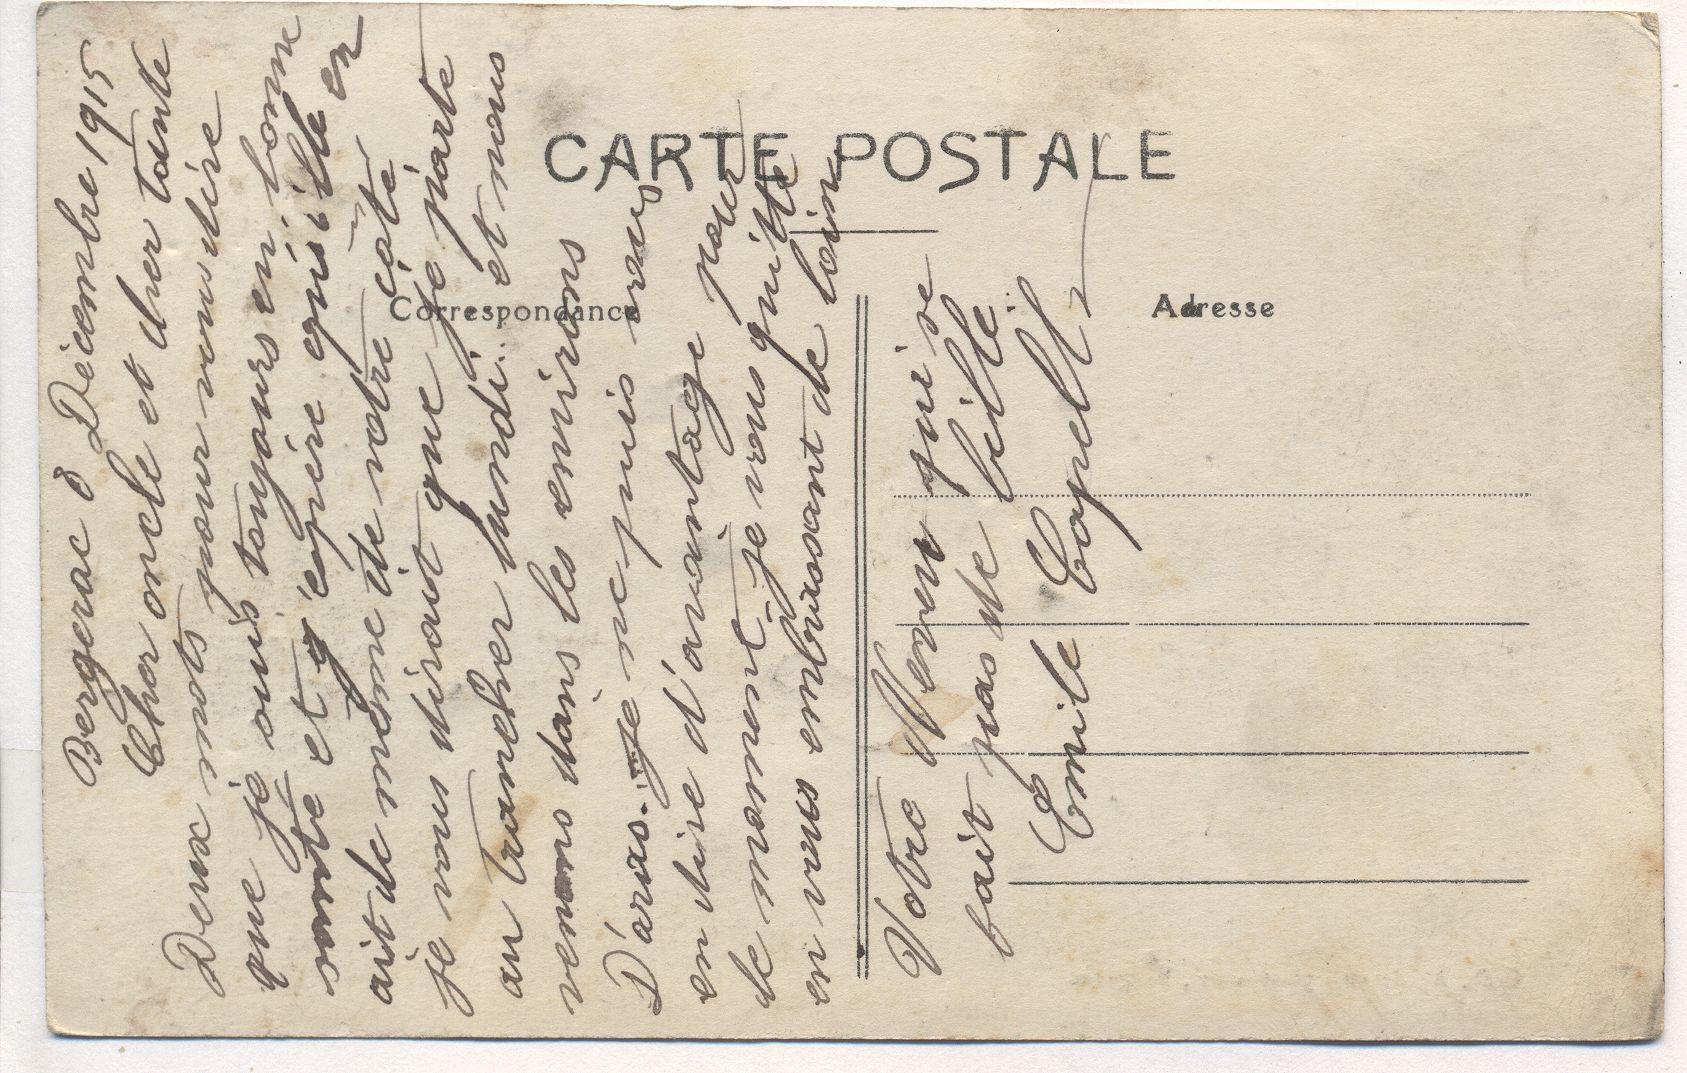 CARTE POSTALE
Correspondance
Adresse
Bergerac 8 Décembre 1915
Cher oncle et cher tante
Deux mots pour vous dire
que je suis toujours en bonne
santé et j'éspère qu'il en
ait de même de votre côté
je vous dirait que je parte
au trancher lundi. et nous
venons dans les environs
D'aras. je ne puis vous
en dire d'avantage pour
le moment je vous quitte
en vous embrassant de loin
Votre Neveu qui se
fait pas de bille.
Emile Capell